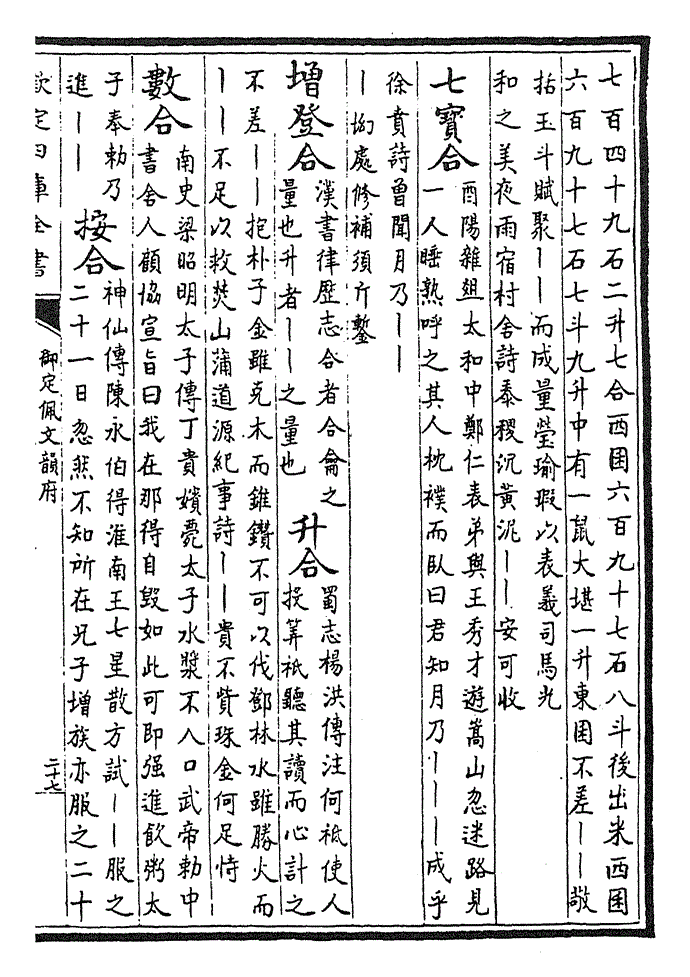 七百四十九石二升七合西囷六百九十七石八斗後出米西囷
六百九十七石七斗九升中有一鼠大堪一升東囷不差丨丨敬
括玉斗賦聚丨丨而成量瑩瑜瑕以表義司馬光
和之美夜雨宿村舍詩泰稷沉黃泥丨丨安可收
七寶合
酉陽雜俎太和中鄭仁表弟與王秀才遊嵩山忽迷路見
一人睡熟呼之其人枕襆而臥曰君知月乃丨丨丨成乎
徐賁詩曾聞月乃丨丨
丨拗處修補須斤鑿
增登合
漢書律歷志合者合龠之
量也升者丨丨之量也
升合
蜀志楊洪傳注何祗使人
投筭祗聽其讀而心計之
不差丨丨抱朴子金雖克木而錐鑽不可以伐鄧林水雖勝火而
丨丨不足以救焚山蒲道源紀事詩丨丨貴不貲珠金何足恃
數合
南史梁昭明太子傳丁貴嬪薨太子水漿不入口武帝勅中
書舍人顧協宣旨曰我在那得自毀如此可即强進飲粥太
子奉勅乃
進丨丨
按合
神仙傳陳永伯得淮南王七星散方試丨丨服之
二十一日忽然不知所在兄子增族亦服之二十
欽定四庫全書
御定佩文韻府
二十七